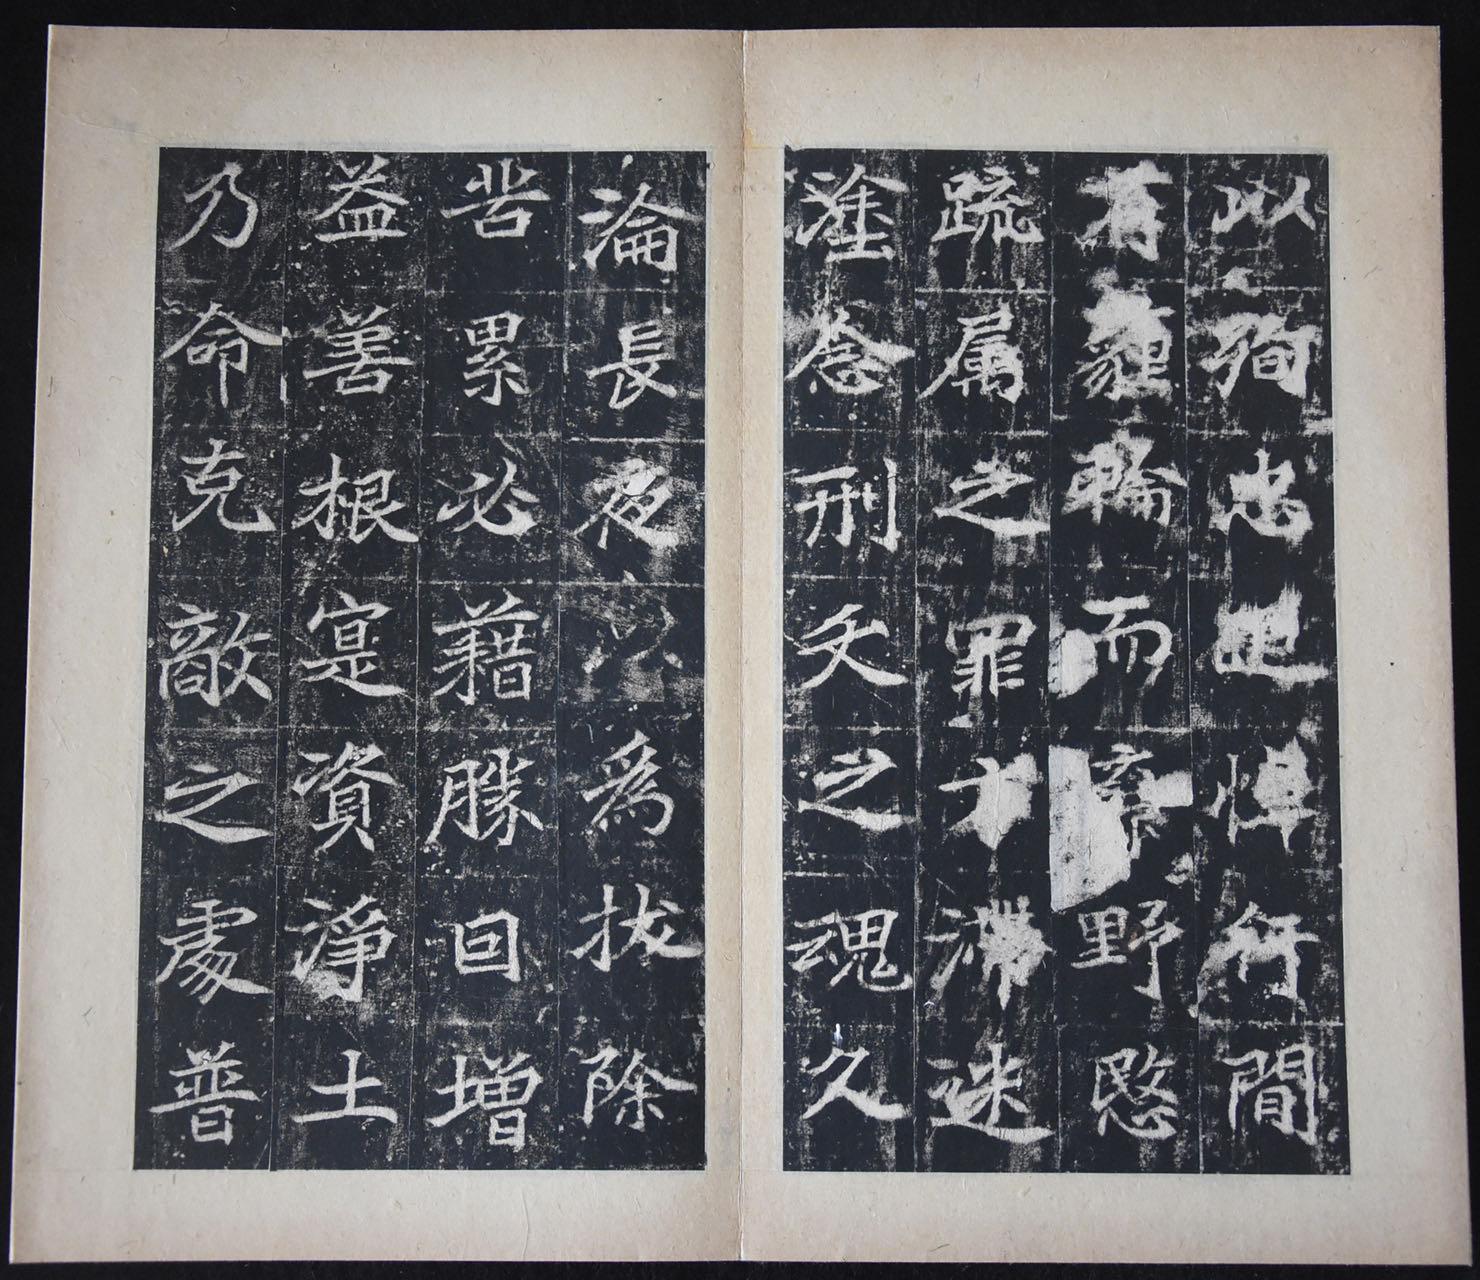 以殉忠悼行間
有輪而野愍
疏属之罪方滯迷
塗念刑夭之魂久
淪長夜以爲拔除
苦累必藉勝因增
益善根寔資淨土
乃命克敵之處普